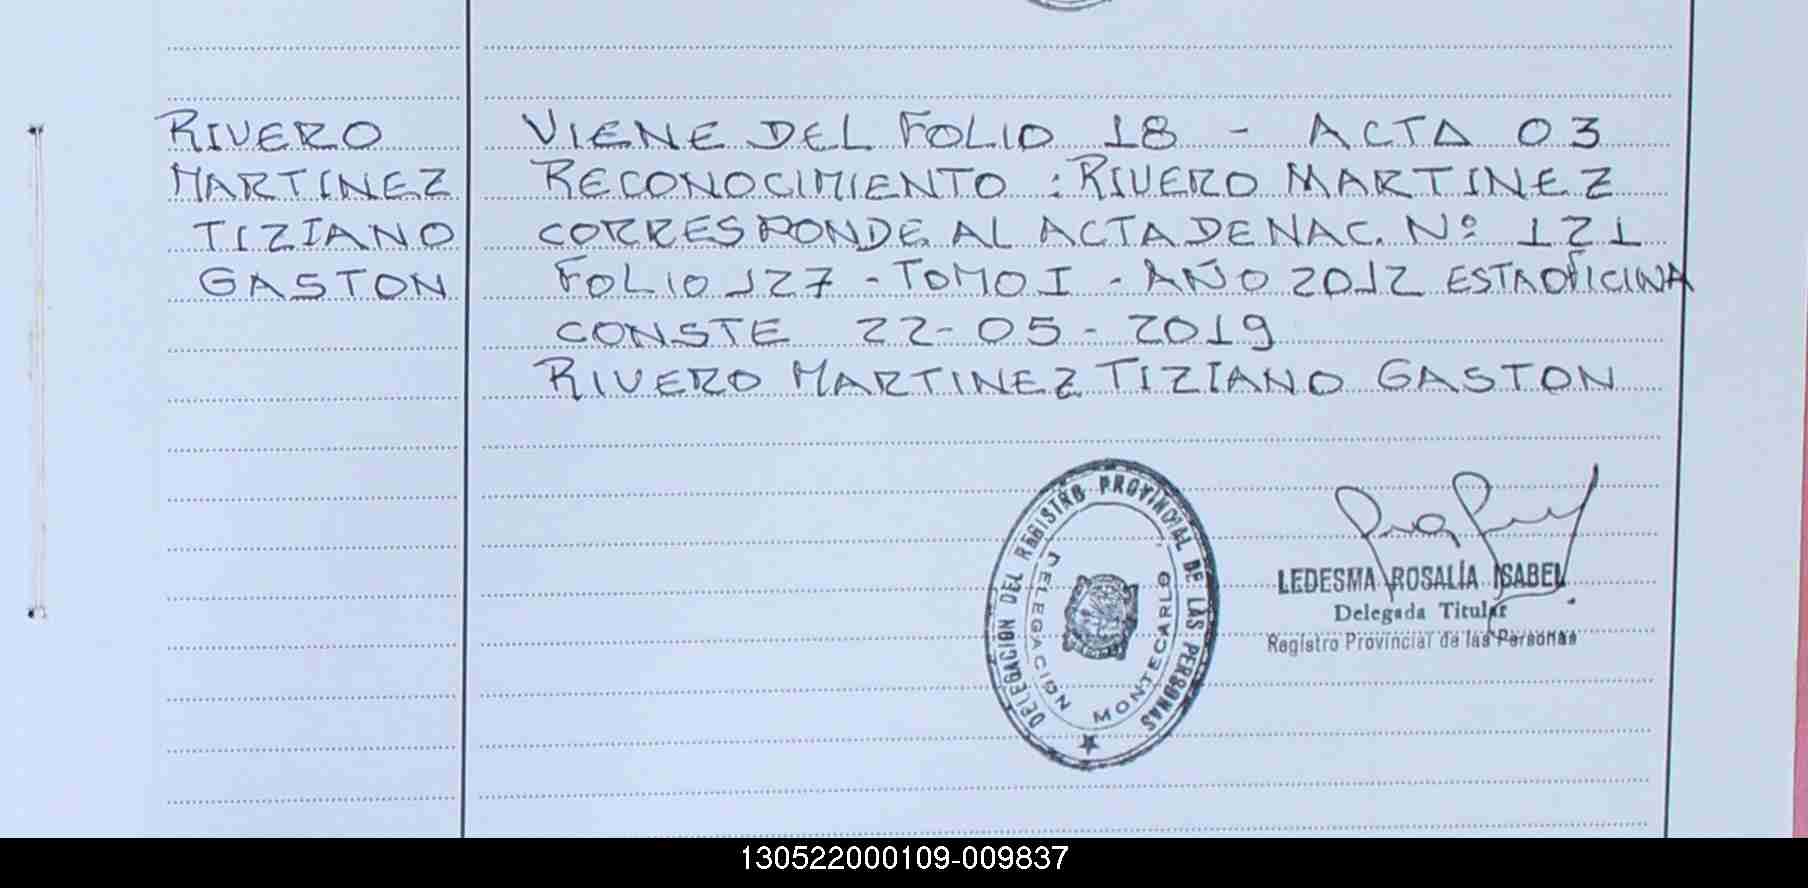 RIVERO
MARTINEZ
TIZIANO
GASTON
VIENE DEL FOLIO 18 - ACTA 03
RECONOCIMIENTO : RIVERO MARTINEZ
CORRESPONDE AL ACTA DE NAC. Nº 121
FOLIO 127 - TOMO I - AÑO 2012 ESTA OFICINA
CONSTE 22-05-2019
RIVERO MARTINEZ TIZIANO GASTON
DELEGACION DEL REGISTRO PROVINCIAL DE LAS PERSONAS
DELEGACION MONTECARLO
LEDESMA ROSALÍA ISABEL
Delegada Titular
Registro Provincial de las Personas
130522000109-009837